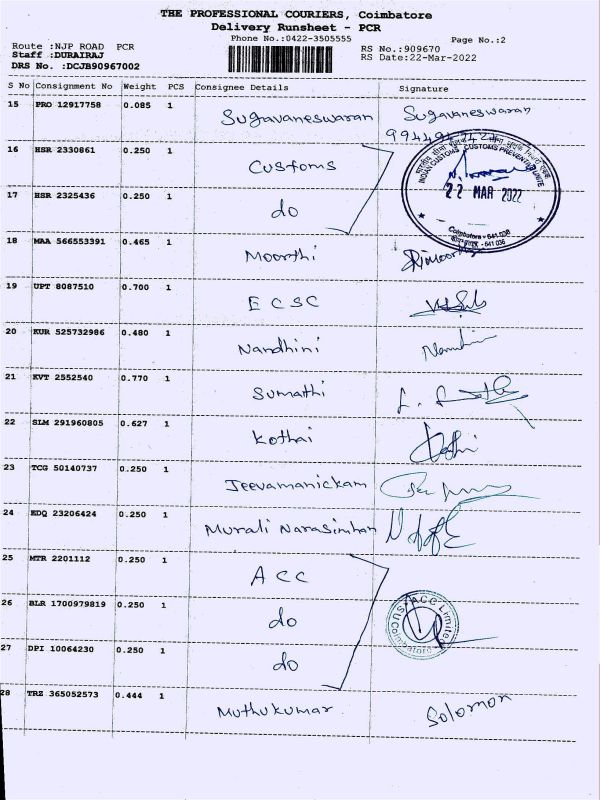 THE PROFESSIONAL COURIERS, Coimbatore
Delivery Runsheet - PCR
Phone No.:0422-3505555
Page No.:2
Route :NJP ROAD PCR
RS No.:909670
Staff :DURAIRAJ
RS Date:22-Mar-2022
DRS No. :DCJB90967002
S No Consignment No Weight PCS Consignee Details Signature
15 PRO 12917758 0.085 1 Sugavaneswaran Sugavaneswaran
16 HSR 2330861 0.250 1 Customs
17 HSR 2325436 0.250 1 do
INDIAN CUSTOMS CUSTOMS PREVENTIVE UNIT
22 MAR 2022
Coimbatore - 641 036
18 MAA 566553391 0.465 1 Moorthi
19 UPT 8087510 0.700 1 ECSC
20 KUR 525732986 0.480 1 Nandhini
21 KVT 2552540 0.770 1 Sumathi
22 SLM 291960805 0.627 1 Kothai
23 TCG 50140737 0.250 1 Jeevamanickam
24 EDQ 23206424 0.250 1 Murali Narasimhan
25 MTR 2201112 0.250 1 ACC
26 BLR 1700979819 0.250 1 do
ACC Limited
Coimbatore
27 DPI 10064230 0.250 1 do
28 TRZ 365052573 0.444 1 Muthukumar Solomon